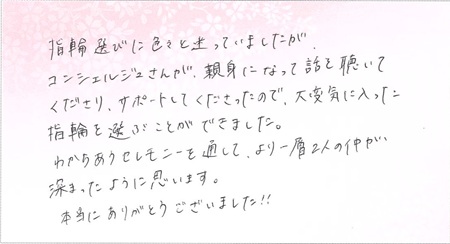 指輪選びに色々と迷っていましたが、
コンシェルジュさんが、親身になって話を聴いて
くださり、サポートしてくださったので、大変気に入った
指輪を選ぶことができました。
わかちあうセレモニーを通して、より一層2人の仲が
深まったように思います。
本当にありがとうございました!!